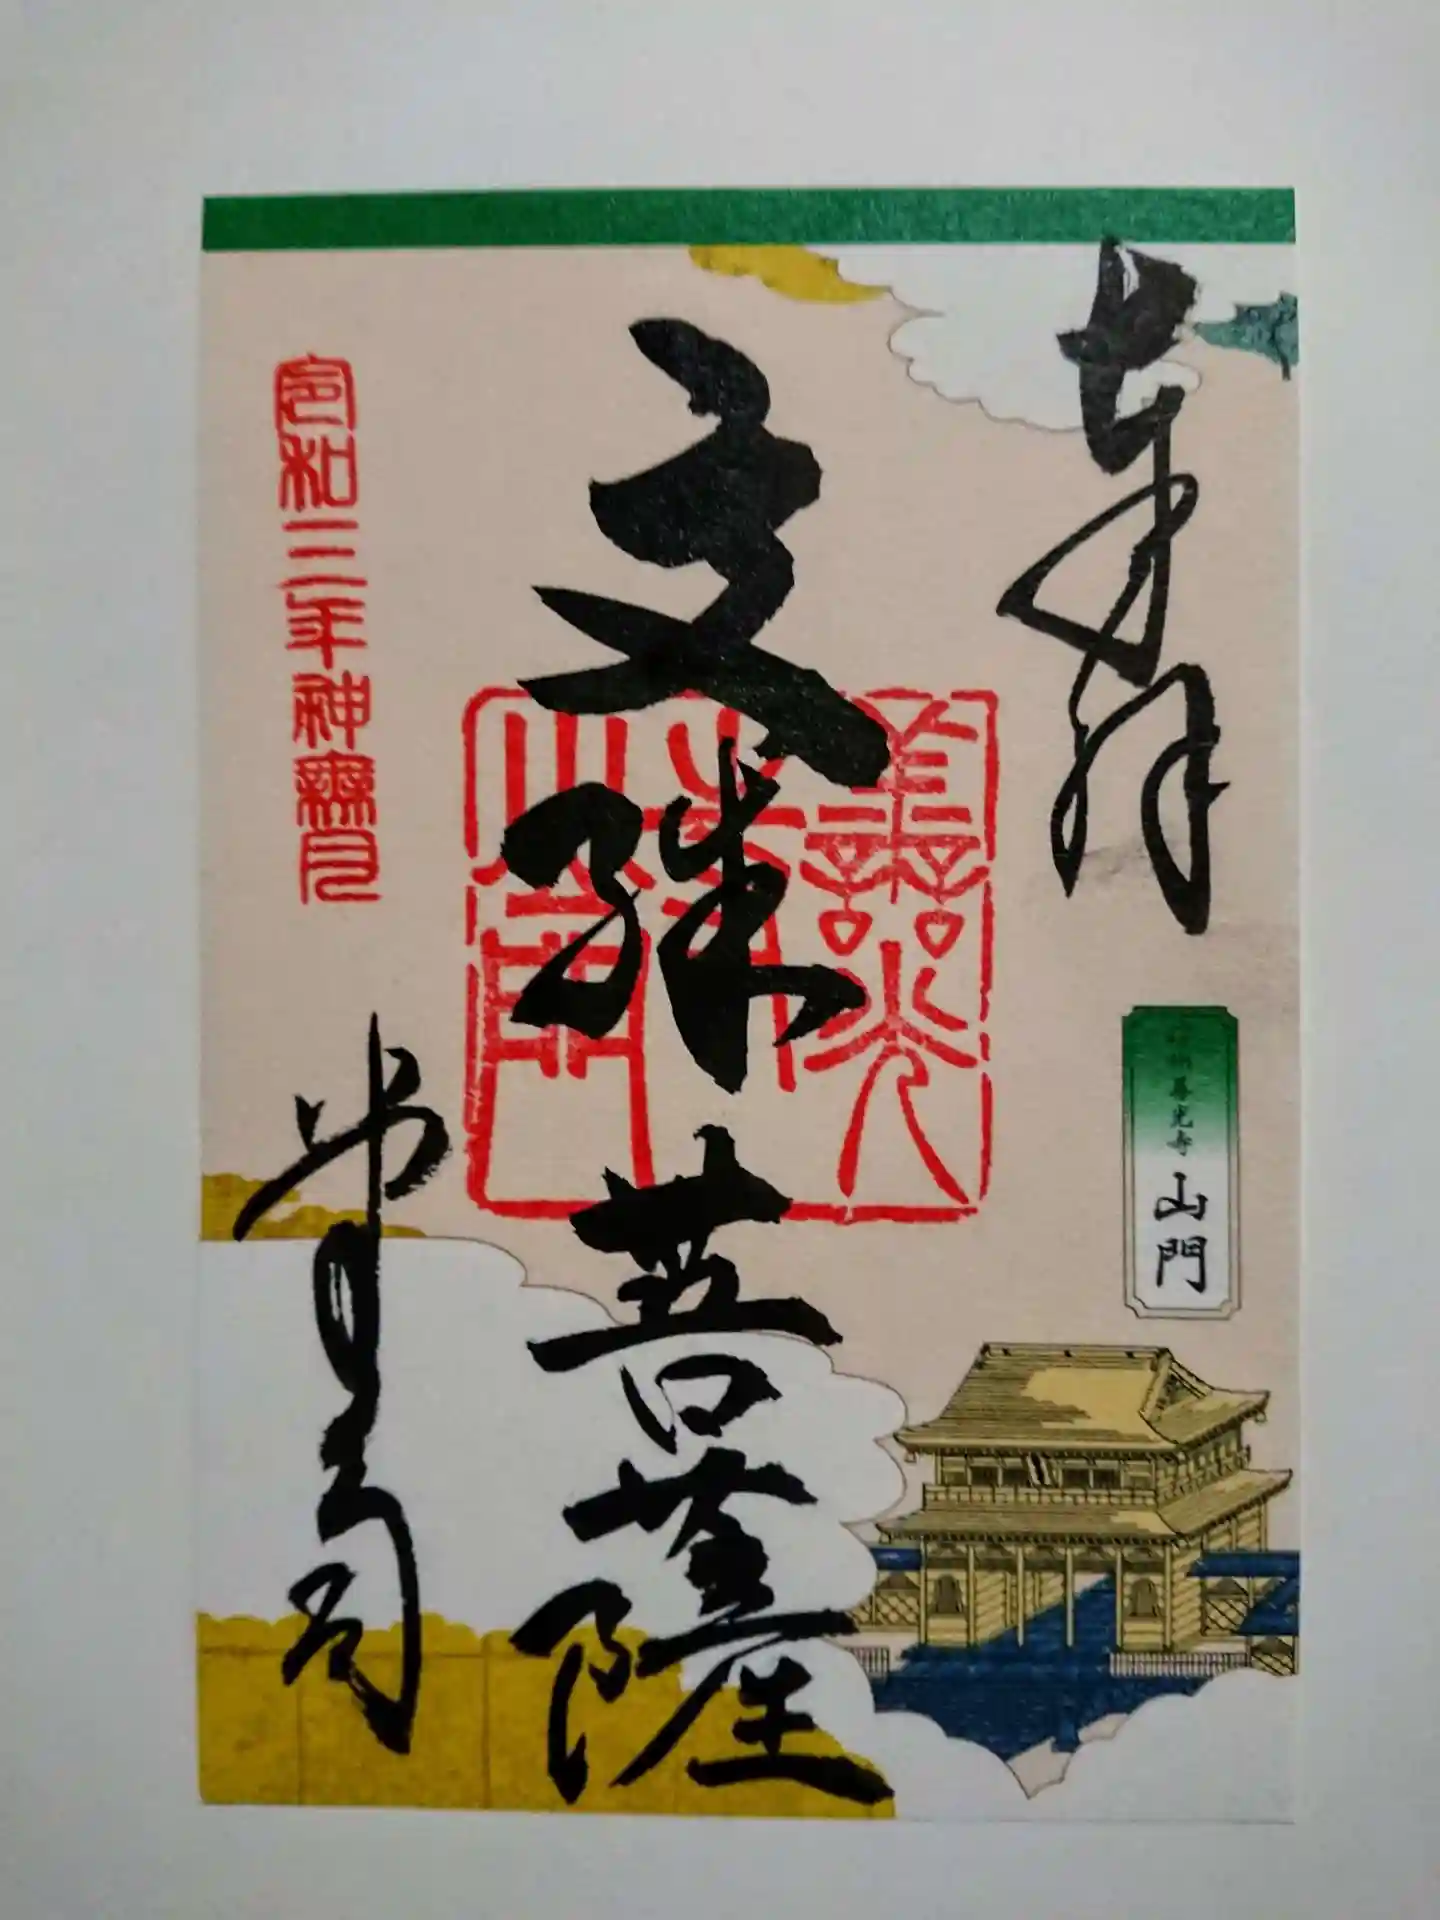 奉拝
信州善光寺
山門
文殊菩薩
善光
寺
山門
令和三年神無月
善光寺